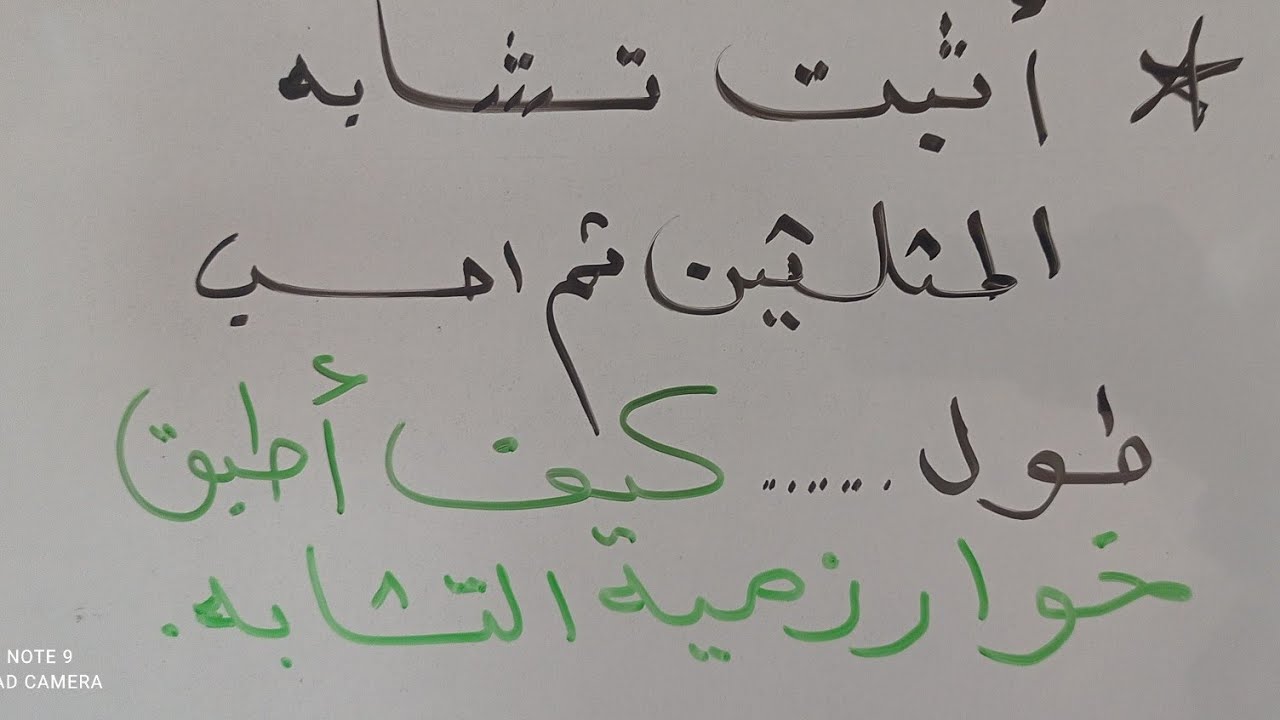 * أثبت تشابه
المثلثين ثم احسب
طول ....... كيف أطبق
خوارزمية التشابه.
NOTE 9
AD CAMERA